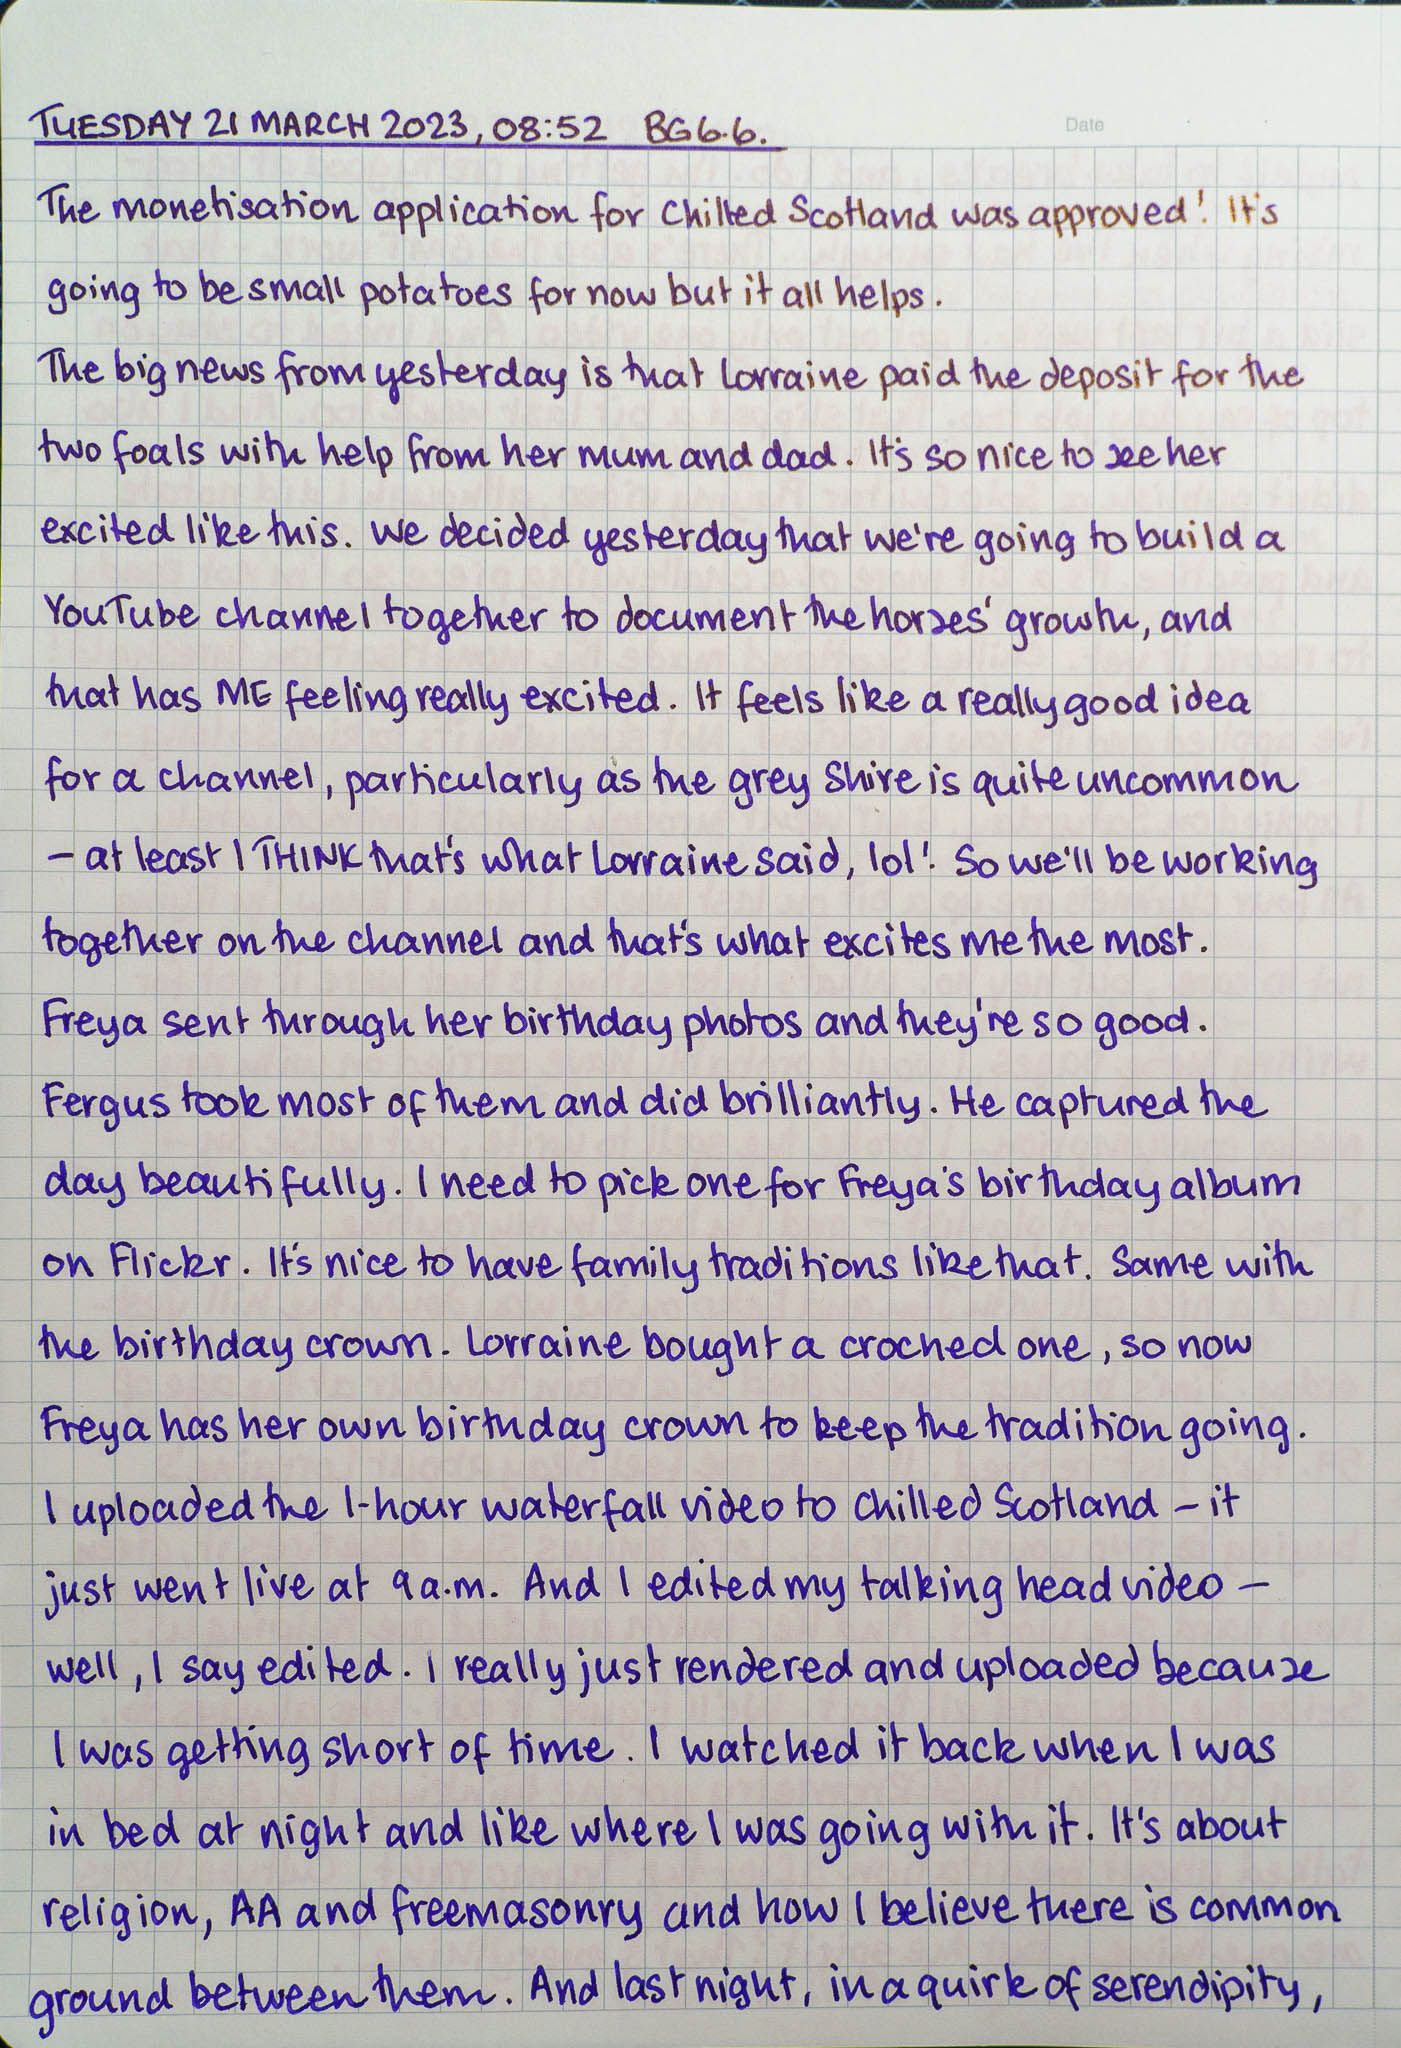 TUESDAY 21 MARCH 2023, 08:52 BG 6.6.
Date
The monetisation application for Chilled Scotland was approved! It's
going to be small potatoes for now but it all helps.
The big news from yesterday is that Lorraine paid the deposit for the
two foals with help from her mum and dad. It's so nice to see her
excited like this. We decided yesterday that we're going to build a
YouTube channel together to document the horses' growth, and
that has ME feeling really excited. It feels like a really good idea
for a channel, particularly as the grey Shire is quite uncommon
– at least I THINK that's what Lorraine said, lol! So we'll be working
together on the channel and that's what excites me the most.
Freya sent through her birthday photos and they're so good.
Fergus took most of them and did brilliantly. He captured the
day beautifully. I need to pick one for Freya's birthday album
on Flickr. It's nice to have family traditions like that. Same with
the birthday crown. Lorraine bought a croched one, so now
Freya has her own birthday crown to keep the tradition going.
I uploaded the 1-hour waterfall video to Chilled Scotland – it
just went live at 9 a.m. And I edited my talking head video –
well, I say edited. I really just rendered and uploaded because
I was getting short of time. I watched it back when I was
in bed at night and like where I was going with it. It's about
religion, AA and freemasonry and how I believe there is common
ground between them. And last night, in a quirk of serendipity,